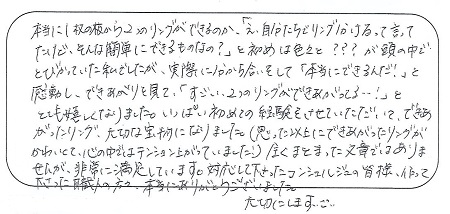 本当に1枚の板から2つのリングができるのか、「え、自分たちでリング分けるって言って
たけど、そんな簡単にできるものなの?」と初めは色々と???が頭の中で
とびかっていた私でしたが、実際に分かち合いをして「本当にできるんだ!」と
感動し、できあがりを見て、「すごい、2つのリングができあがってる…!」と
とても嬉しくなりました。いっぱい初めての経験をさせていただいて、できあ
がったリング、大切な宝物になりました。(思った以上にできあがったリングが
かわいくて、心の中ではテンション上がっていました!)全くまとまった文章ではあり
ませんが、非常に満足しています。対応して下さったコンシェルジュの皆様、作って
下さった職人の方々、本当にありがとうございました。
大切にしますっ。